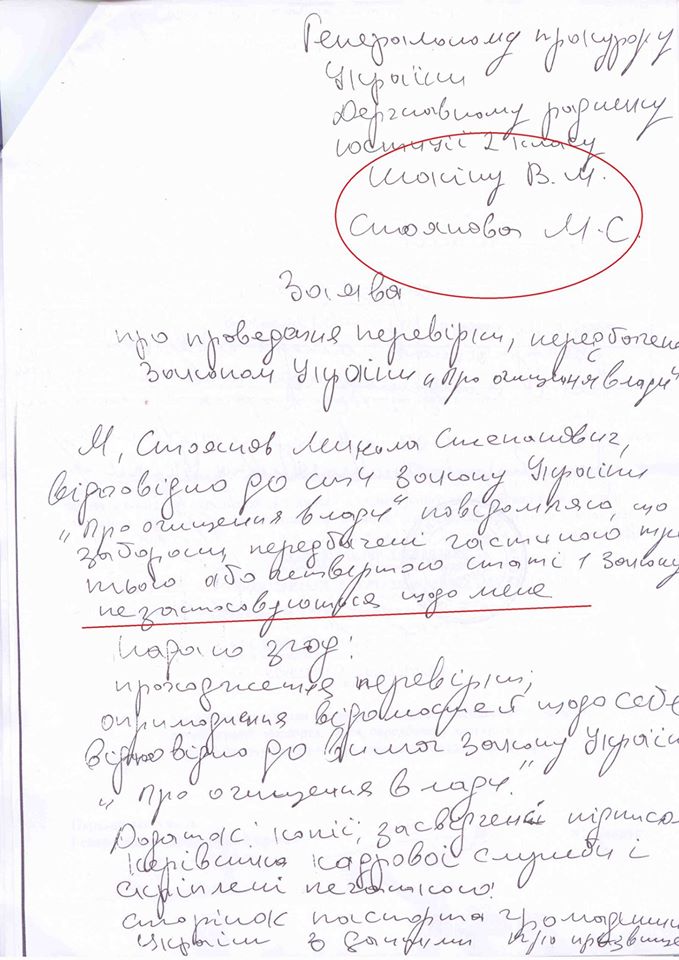 Генеральному прокурору
України
Державному раднику
юстиції 2 класу
Шокіну В.М.
Стоянова М.С.
Заява
про проведення перевірки, передбачене
Законом України „Про очищення влади"
Я, Стоянов Микола Степанович,
відповідно до статі Закону України
„Про очищення влади" повідомляю, що
заборони, передбачені частиною тре
тього або четвертого статі 1 Закону
не застосовуються щодо мене
Надаю згоду:
проходження перевірки;
оприлюднення відомостей щодо себе
відповідно до вимог Закону України
„Про очищення влади."
Додаток: копії, засвідчені підписом
керівника кадрової служби і
скріплені печаткою:
сторінок паспорта громадянина
України з даними про прізвище